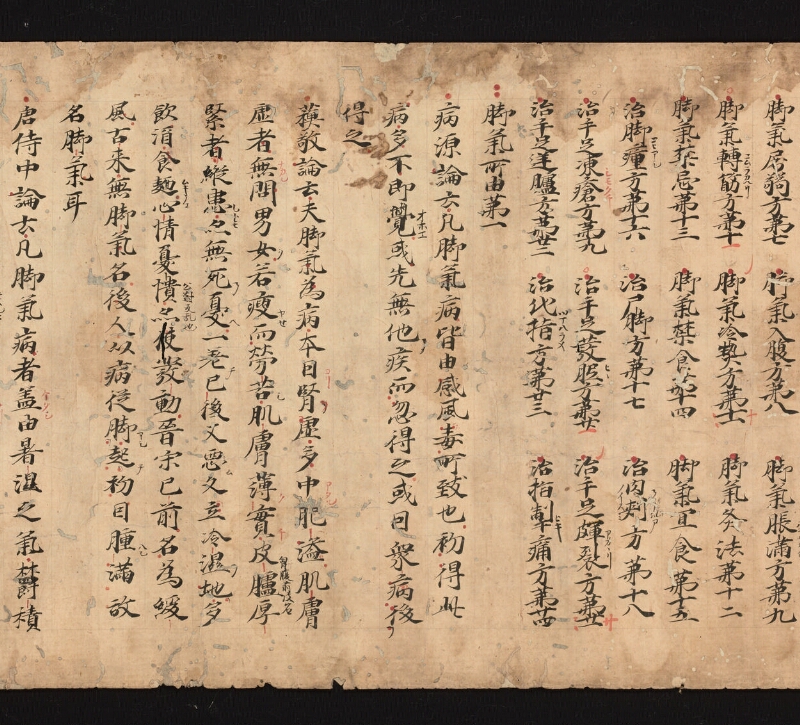 脚氣屈弱方第七 脚氣入腹方第八 脚氣脹滿方第九
脚氣轉筋方第十 脚氣冷熱方第十一 脚氣灸法第十二
脚氣禁忌第十三 脚氣禁食第十四 脚氣宜食第十五
治脚瘇方第十六 治尸脚方第十七 治肉刺方第十八
治手足凍瘡方第十九 治手足發胝方第廿 治手足皸裂方第廿一
治手足逆臚方第廿二 治代指方第廿三 治指掣痛方第廿四
脚氣所由第一
病源論云凡脚氣病皆由感風毒所致也初得此
病多不即覺或先無他疾而忽得之或因衆病後
得之
蘇敬論云夫脚氣為病本因腎虛多中肥溢肌膚
虛者無問男女若瘦而勞苦肌膚薄實皮膚厚
緊者縱患亦無死憂一差已後又惡久立冷濕地多
飲酒食麵心情憂憒亦使發動晉宋已前名為緩
風古来無脚氣名後人以病從脚起初因腫滿故
名脚氣耳
唐侍中論云凡脚氣病者盖由暑濕之氣欝積